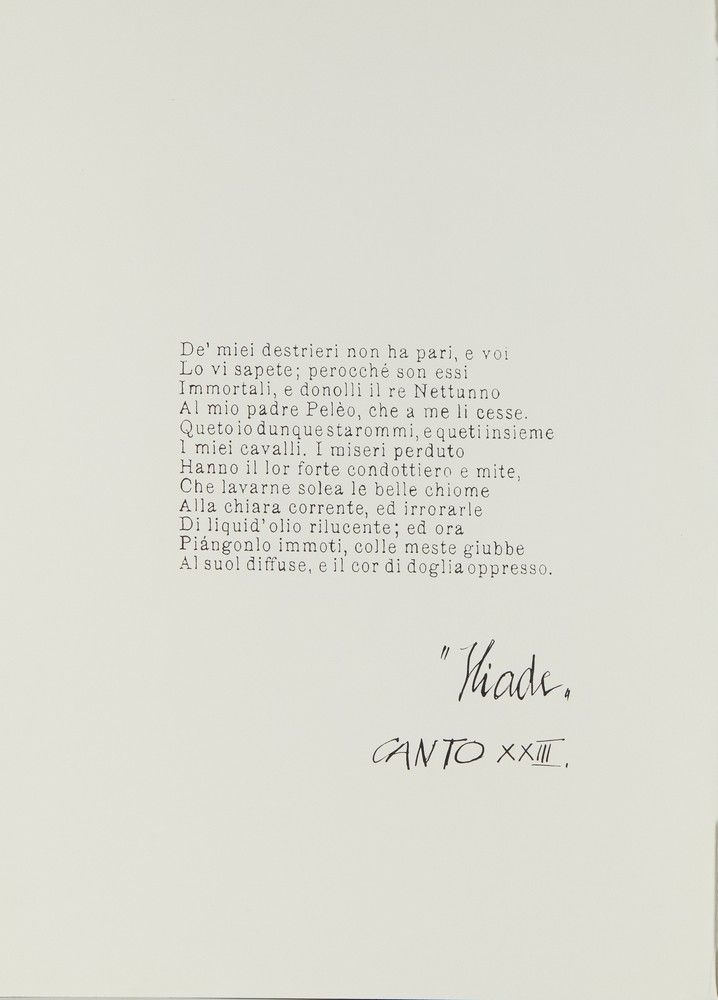 De' miei destrieri non ha pari, e voi
Lo vi sapete; perocché son essi
Immortali, e donolli il re Nettunno
Al mio padre Pelèo, che a me li cesse.
Queto io dunque starommi, e queti insieme
I miei cavalli. I miseri perduto
Hanno il lor forte condottiero e mite,
Che lavarne solea le belle chiome
Alla chiara corrente, ed irrorarle
Di liquid'olio rilucente; ed ora
Piángonlo immoti, colle meste giubbe
Al suol diffuse, e il cor di doglia oppresso.
"Iliade"
CANTO XXIII.